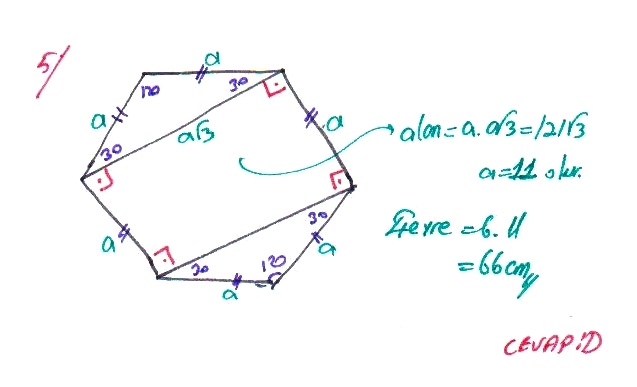 5/
a
120
30
a
a
30
a√3
alan = a. a√3 = 121√3
a = 11 olur.
a
30
Çevre = 6. 11
a
= 66 cm
30
120
a
CEVAP: D